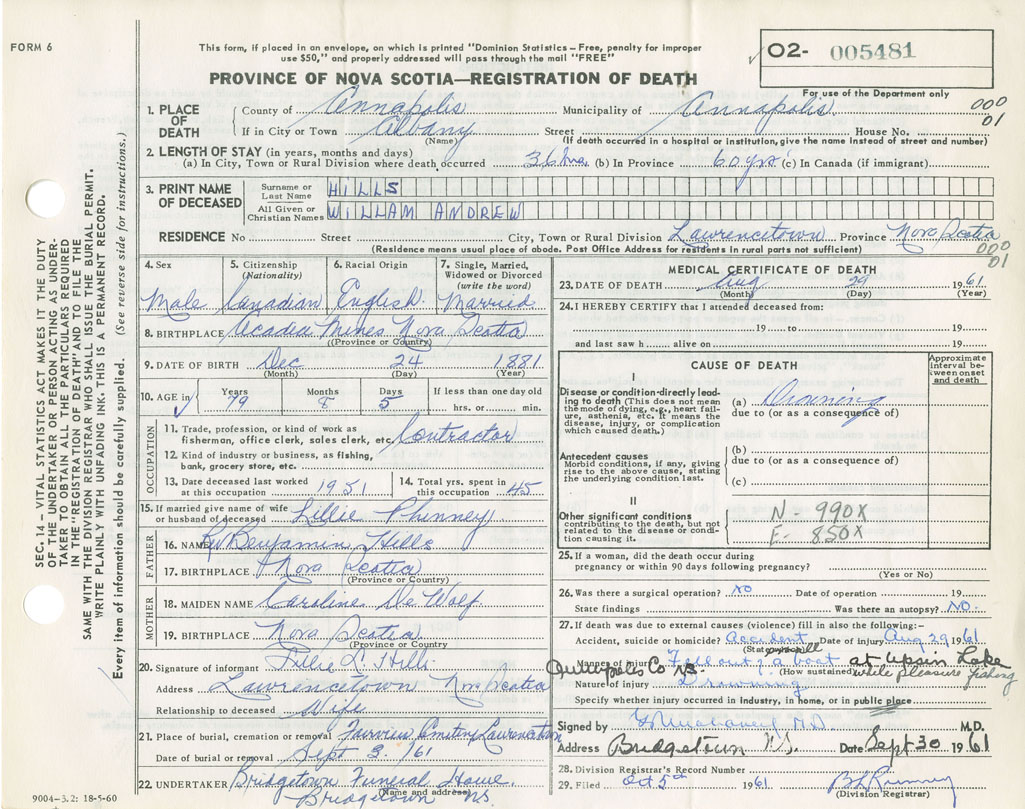 FORM 6
This form, if placed in an envelope, on which is printed "Dominion Statistics – Free, penalty for improper
use $50," and properly addressed will pass through the mail "FREE"
O2- 005481
For use of the Department only
PROVINCE OF NOVA SCOTIA—REGISTRATION OF DEATH
000
01
1. PLACE OF DEATH County of Annapolis Municipality of Annapolis
If in City or Town Albany Street House No.
(Name) (If death occurred in a hospital or institution, give the name instead of street and number)
2. LENGTH OF STAY (in years, months and days)
(a) In City, Town or Rural Division where death occurred (b) In Province 60 yrs (c) In Canada (if immigrant)
3. PRINT NAME OF DECEASED Surname or Last Name HILLS
All Given or Christian Names WILLAM ANDREW
RESIDENCE No Street City, Town or Rural Division Lawrencetown Province Nova Scotia
(Residence means usual place of abode. Post Office Address for residents in rural parts not sufficient)
000
01
4. Sex 5. Citizenship (Nationality) 6. Racial Origin 7. Single, Married, Widowed or Divorced (write the word)
Male Canadian English Married
8. BIRTHPLACE Acadia Mines Nova Scotia
(Province or Country)
9. DATE OF BIRTH Dec 24 1881
(Month) (Day) (Year)
10. AGE in Years Months Days If less than one day old
79 8 5 hrs. or min.
OCCUPATION
11. Trade, profession, or kind of work as
fisherman, office clerk, sales clerk, etc. Contractor
12. Kind of industry or business, as fishing,
bank, grocery store, etc.
13. Date deceased last worked at this occupation 1951 14. Total yrs. spent in this occupation 45
15. If married give name of wife
or husband of deceased Lillie Phinney
FATHER
16. NAME Rev Benjamin Hills
17. BIRTHPLACE Nova Scotia
(Province or Country)
MOTHER
18. MAIDEN NAME Caroline De Wolf
19. BIRTHPLACE Nova Scotia
(Province or Country
20. Signature of informant Lillie L. Hills
Address Lawrencetown Nova Scotia
Relationship to deceased Wife
21. Place of burial, cremation or removal Fairview Cemetery Lawrencetown
Date of burial or removal Sept 3 /61
22. UNDERTAKER Bridgetown Funeral Home
(Name and address)
Bridgetown NS.
9004–3.2: 18-5-60
MEDICAL CERTIFICATE OF DEATH
23. DATE OF DEATH Aug 29 1961
(Month) (Day) (Year)
24. I HEREBY CERTIFY that I attended deceased from:
19 to 19
and last saw h alive on 19
CAUSE OF DEATH
Approximate interval between onset and death
I
Disease or condition directly leading to death (This does not mean the mode of dying, e.g., heart failure, asthenia, etc. It means the disease, injury, or complication which caused death.)
(a) Drowning
due to (or as a consequence of)
Antecedent causes
Morbid conditions, if any, giving rise to the above cause, stating the underlying condition last.
(b)
due to (or as a consequence of)
(c)
II
Other significant conditions contributing to the death, but not related to the disease or condition causing it.
N - 990X
E - 850X
25. If a woman, did the death occur during
pregnancy or within 90 days following pregnancy?
(Yes or No)
26. Was there a surgical operation? NO Date of operation 19
State findings Was there an autopsy? NO.
27. If death was due to external causes (violence) fill in also the following:-
Accident, suicide or homicide? Accident Date of injury Aug 29 1961
Manner of injury Fell out of a boat at Lake Annapolis Co NS.
(How sustained) while pleasure fishing
Nature of injury Drowning
Specify whether injury occurred in industry, in home, or in public place
Signed by M.D. M.D.
Address Bridgetown N.S. Date Sept 30 1961
28. Division Registrar's Record Number
29. Filed Oct 5th 1961
(Division Registrar)
SEC. 14 – VITAL STATISTICS ACT MAKES IT THE DUTY
OF THE UNDERTAKER OR PERSON ACTING AS UNDER-
TAKER TO OBTAIN ALL THE PARTICULARS REQUIRED
IN THE "REGISTRATION OF DEATH" AND TO FILE THE
SAME WITH THE DIVISION REGISTRAR WHO SHALL ISSUE THE BURIAL PERMIT.
WRITE PLAINLY WITH UNFADING INK. THIS IS A PERMANENT RECORD.
Every item of information should be carefully supplied. (See reverse side for instructions.)